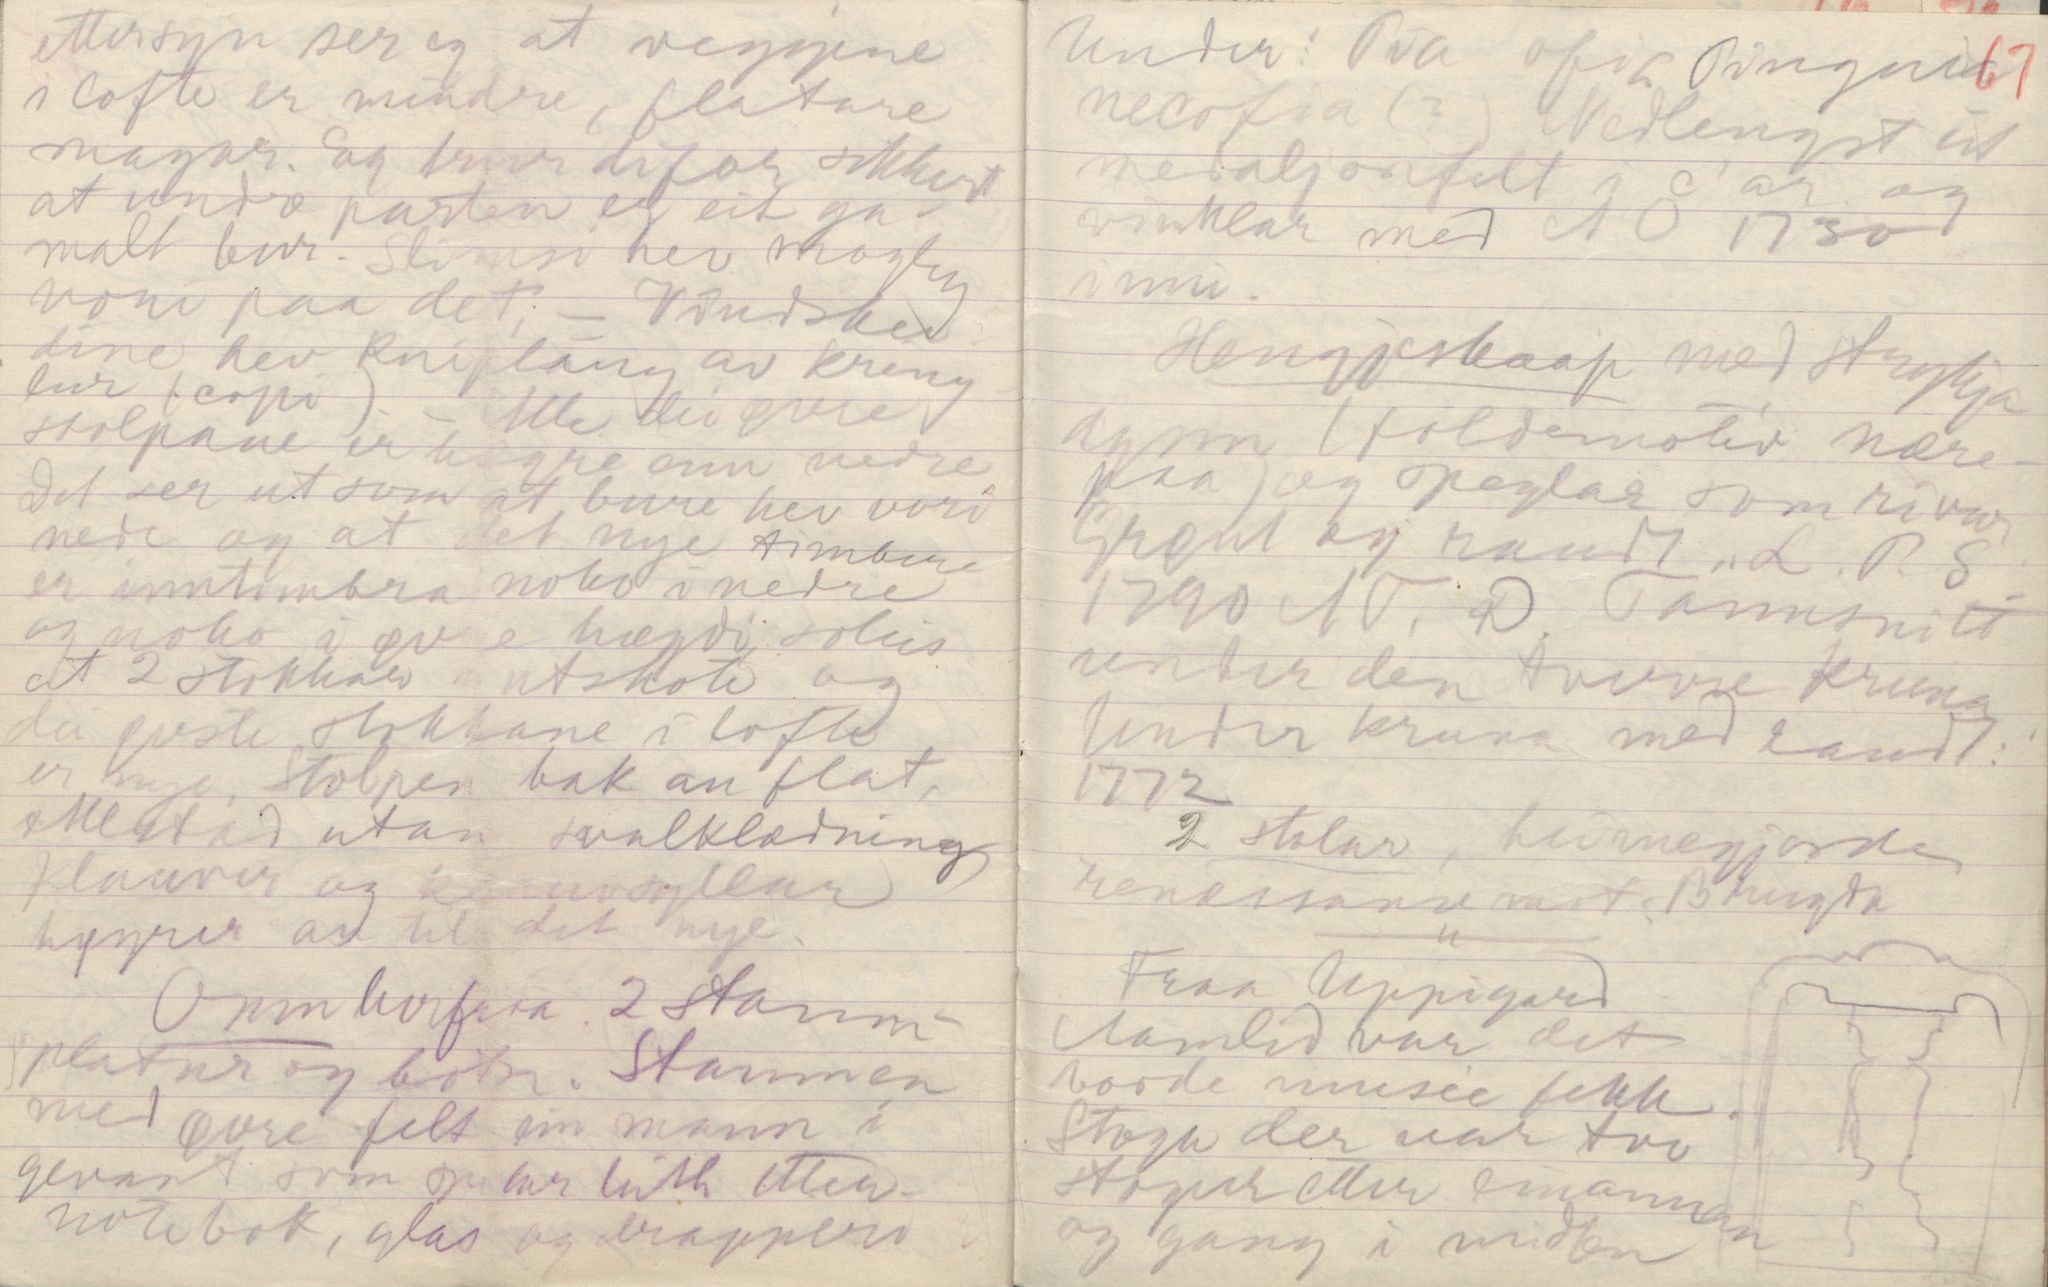 ettersyn ser eg at veggjene
i lofte er mindre, flatare
magar. Eg trur difor sikkert
at undre parten er eit ga-
malt bur. Slömsi hev mogleg
voni paa det. — Vindskei
dine hev knipläng av kreng
lur (copi). — Alle dei øvre
stolpane er høgre enn nedre
Det ser ut som at bure hev vori
nede og at det nye timbure
er inntimbra noko i nedre
og noko i øvre høgdi, soleis
at 2 stokkar utskote og
dei øvste stokkane i lofte
er nye. Stolpen bak an flat,
allstad utan svalklædning
Klauver og syllar
høyrer av til det nye.
Omn herfraa. 2 stamm-
platur og botn. Stammen
med øvre felt ein mann i
gevant som spelar luth etter
notebok, glas og drapperi
67
Under: Pia
necofia (?) Nedlengst eit
medaljonfelt i C ar og
vinklar med N O 1730
inni.
Hengjeskaap med strykja
dynn (foldemotiv nære-
paa) og speglar som rivur
Grønt og raudt „L. P. S
1790 N T. D. Tannsnitt
under den tverre kruna
Under kruna med raudt:
1772
2 stolar, heimegjorde
renæssanse mot. Brugda
"
Fraa Uppigard
Namlid var det
boode musie fekk.
Stogu der var tvo
stogur etter einannan
og gang i midten